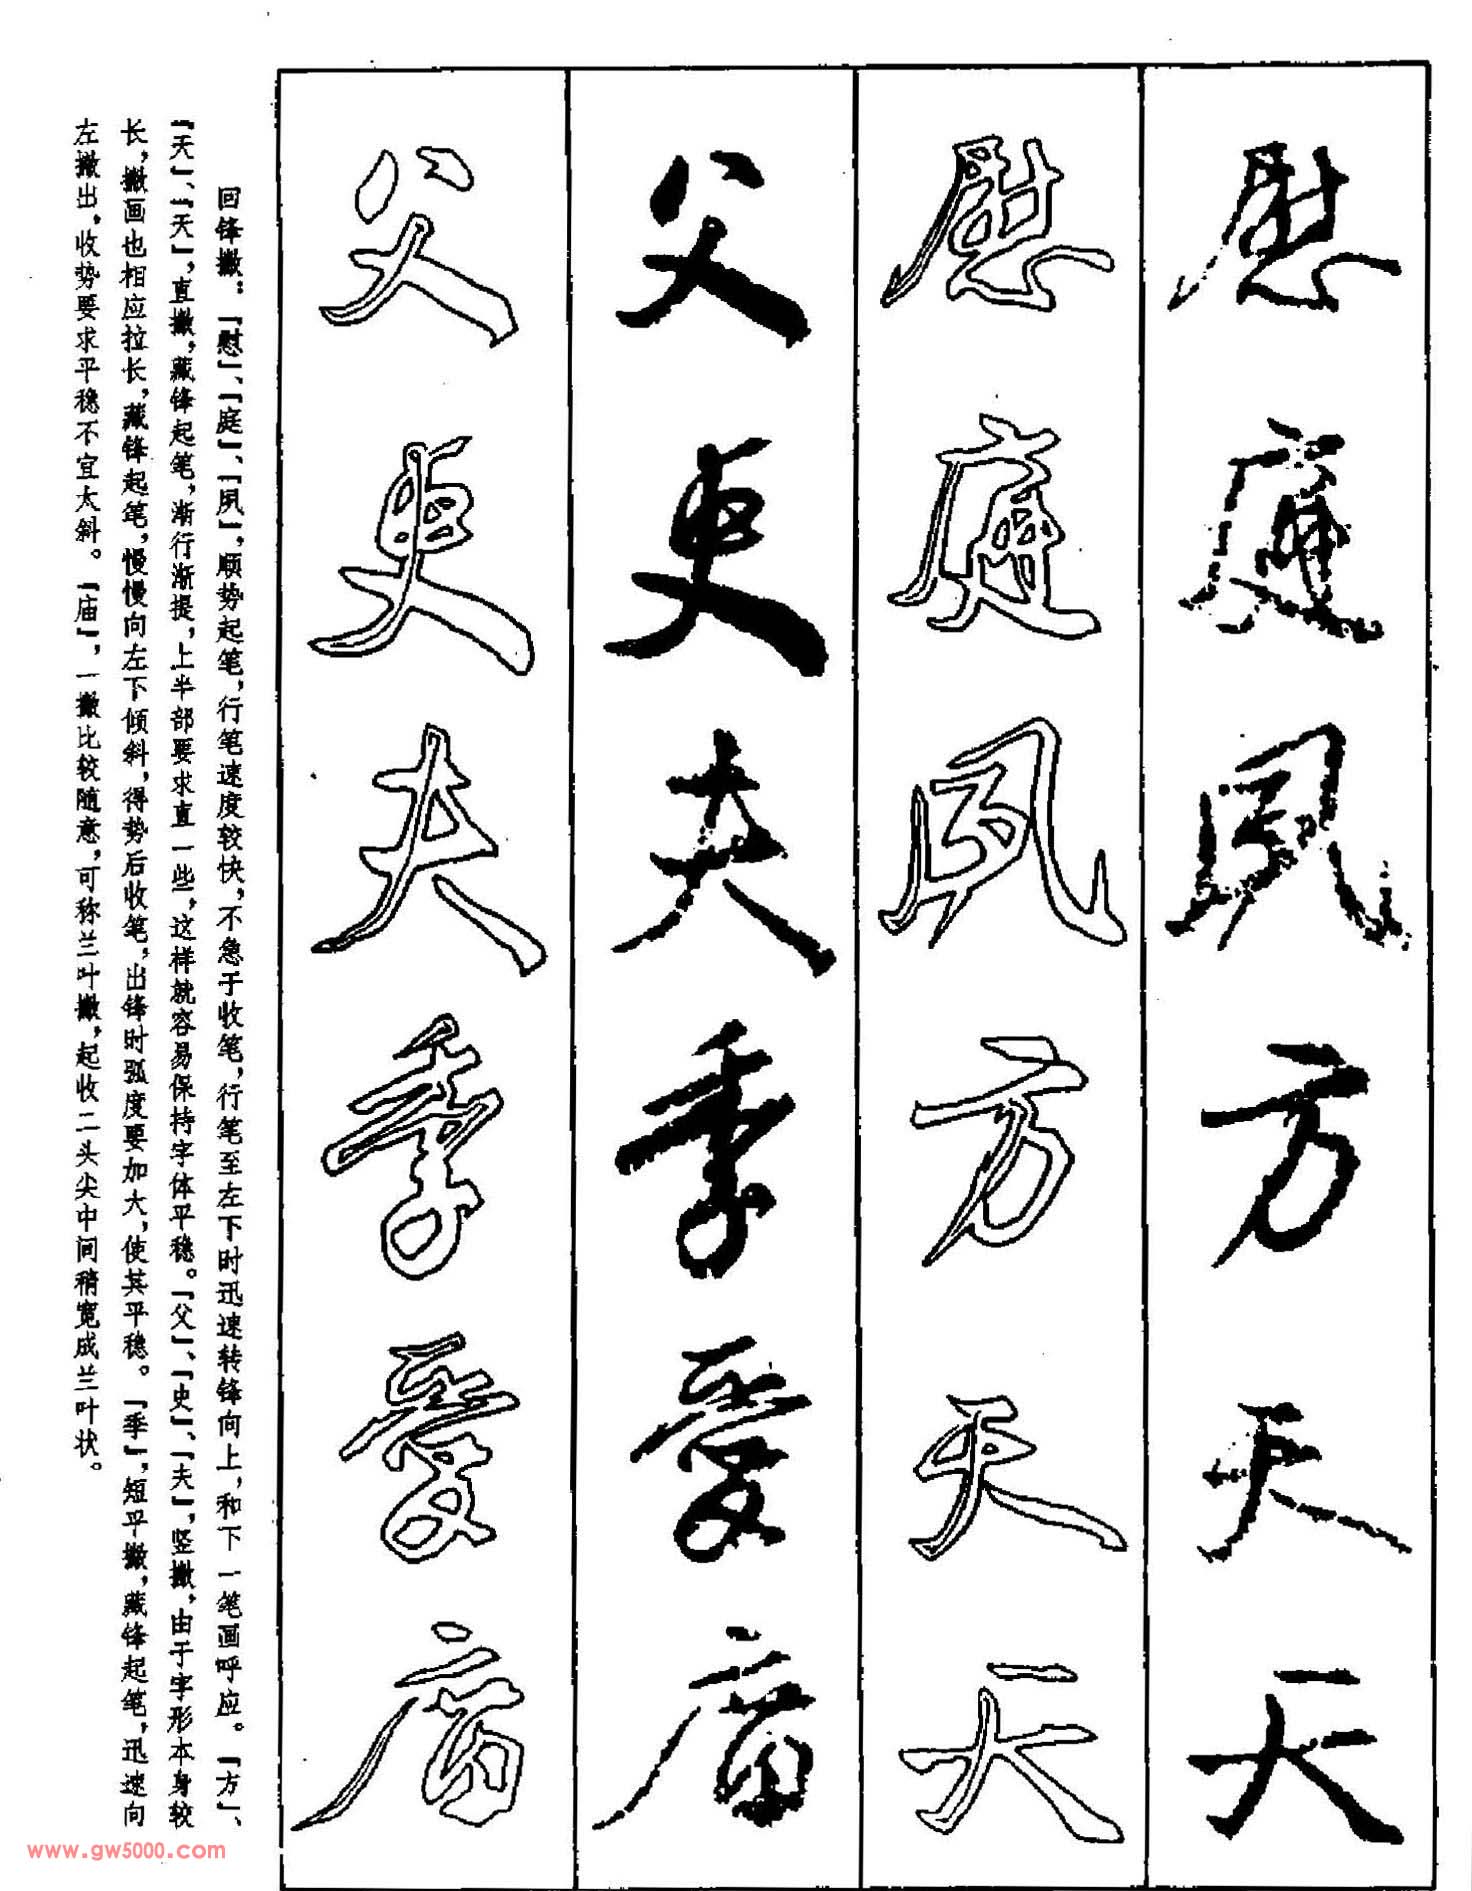 慰庭夙方天天
慰庭夙方天天
父吏夫季爱庙
父吏夫季爱庙
回锋撇：「慰」、「庭」、「夙」，顺势起笔，行笔速度较快，不急于收笔，行笔至左下时迅速转锋向上，和下一笔画呼应。「方」、
「天」、「天」，直撇，藏锋起笔，渐行渐提，上半部要求直一些，这样就容易保持字体平稳。「父」、「史」、「夫」，竖撇，由于字形本身较
长，撇画也相应拉长，藏锋起笔，慢慢向左下倾斜，得势后收笔，出锋时弧度要加大，使其平稳。「季」，短平撇，藏锋起笔，迅速向
左撇出，收势要求平稳不宜太斜。「庙」，一撇比较随意，可称兰叶撇，起收二头尖中间稍宽成兰叶状。
www.gw5000.com